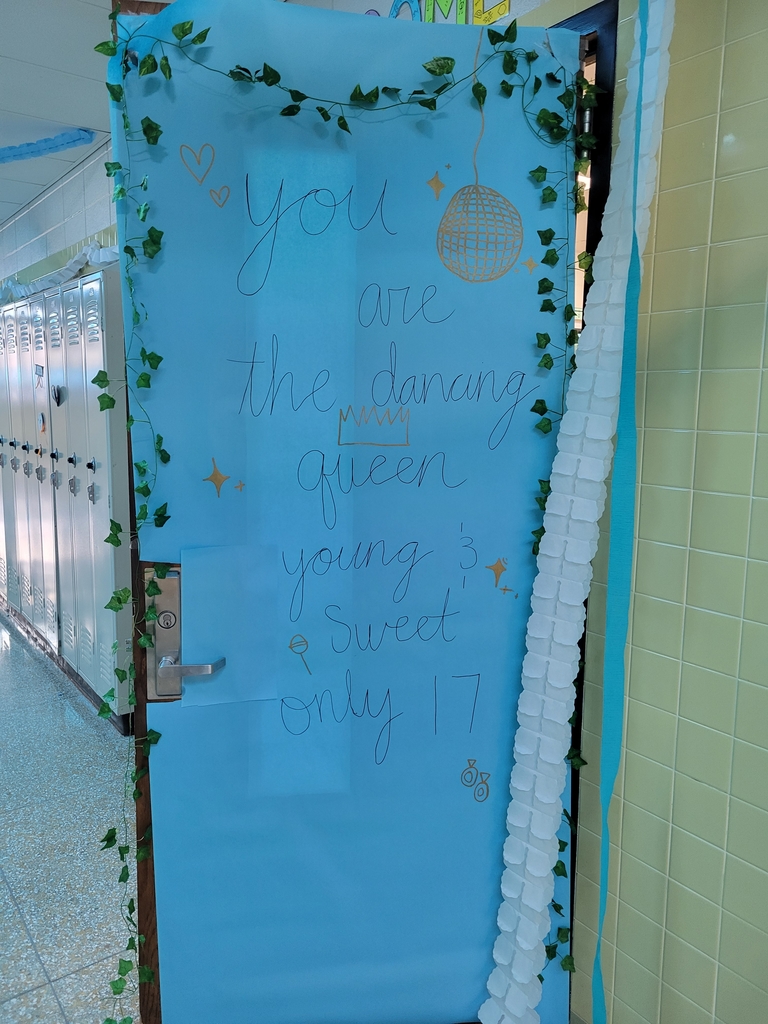 you
are
the dancing
queen
young &
sweet
only 17